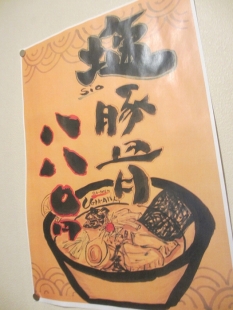 塩豚骨
sio
八八〇円